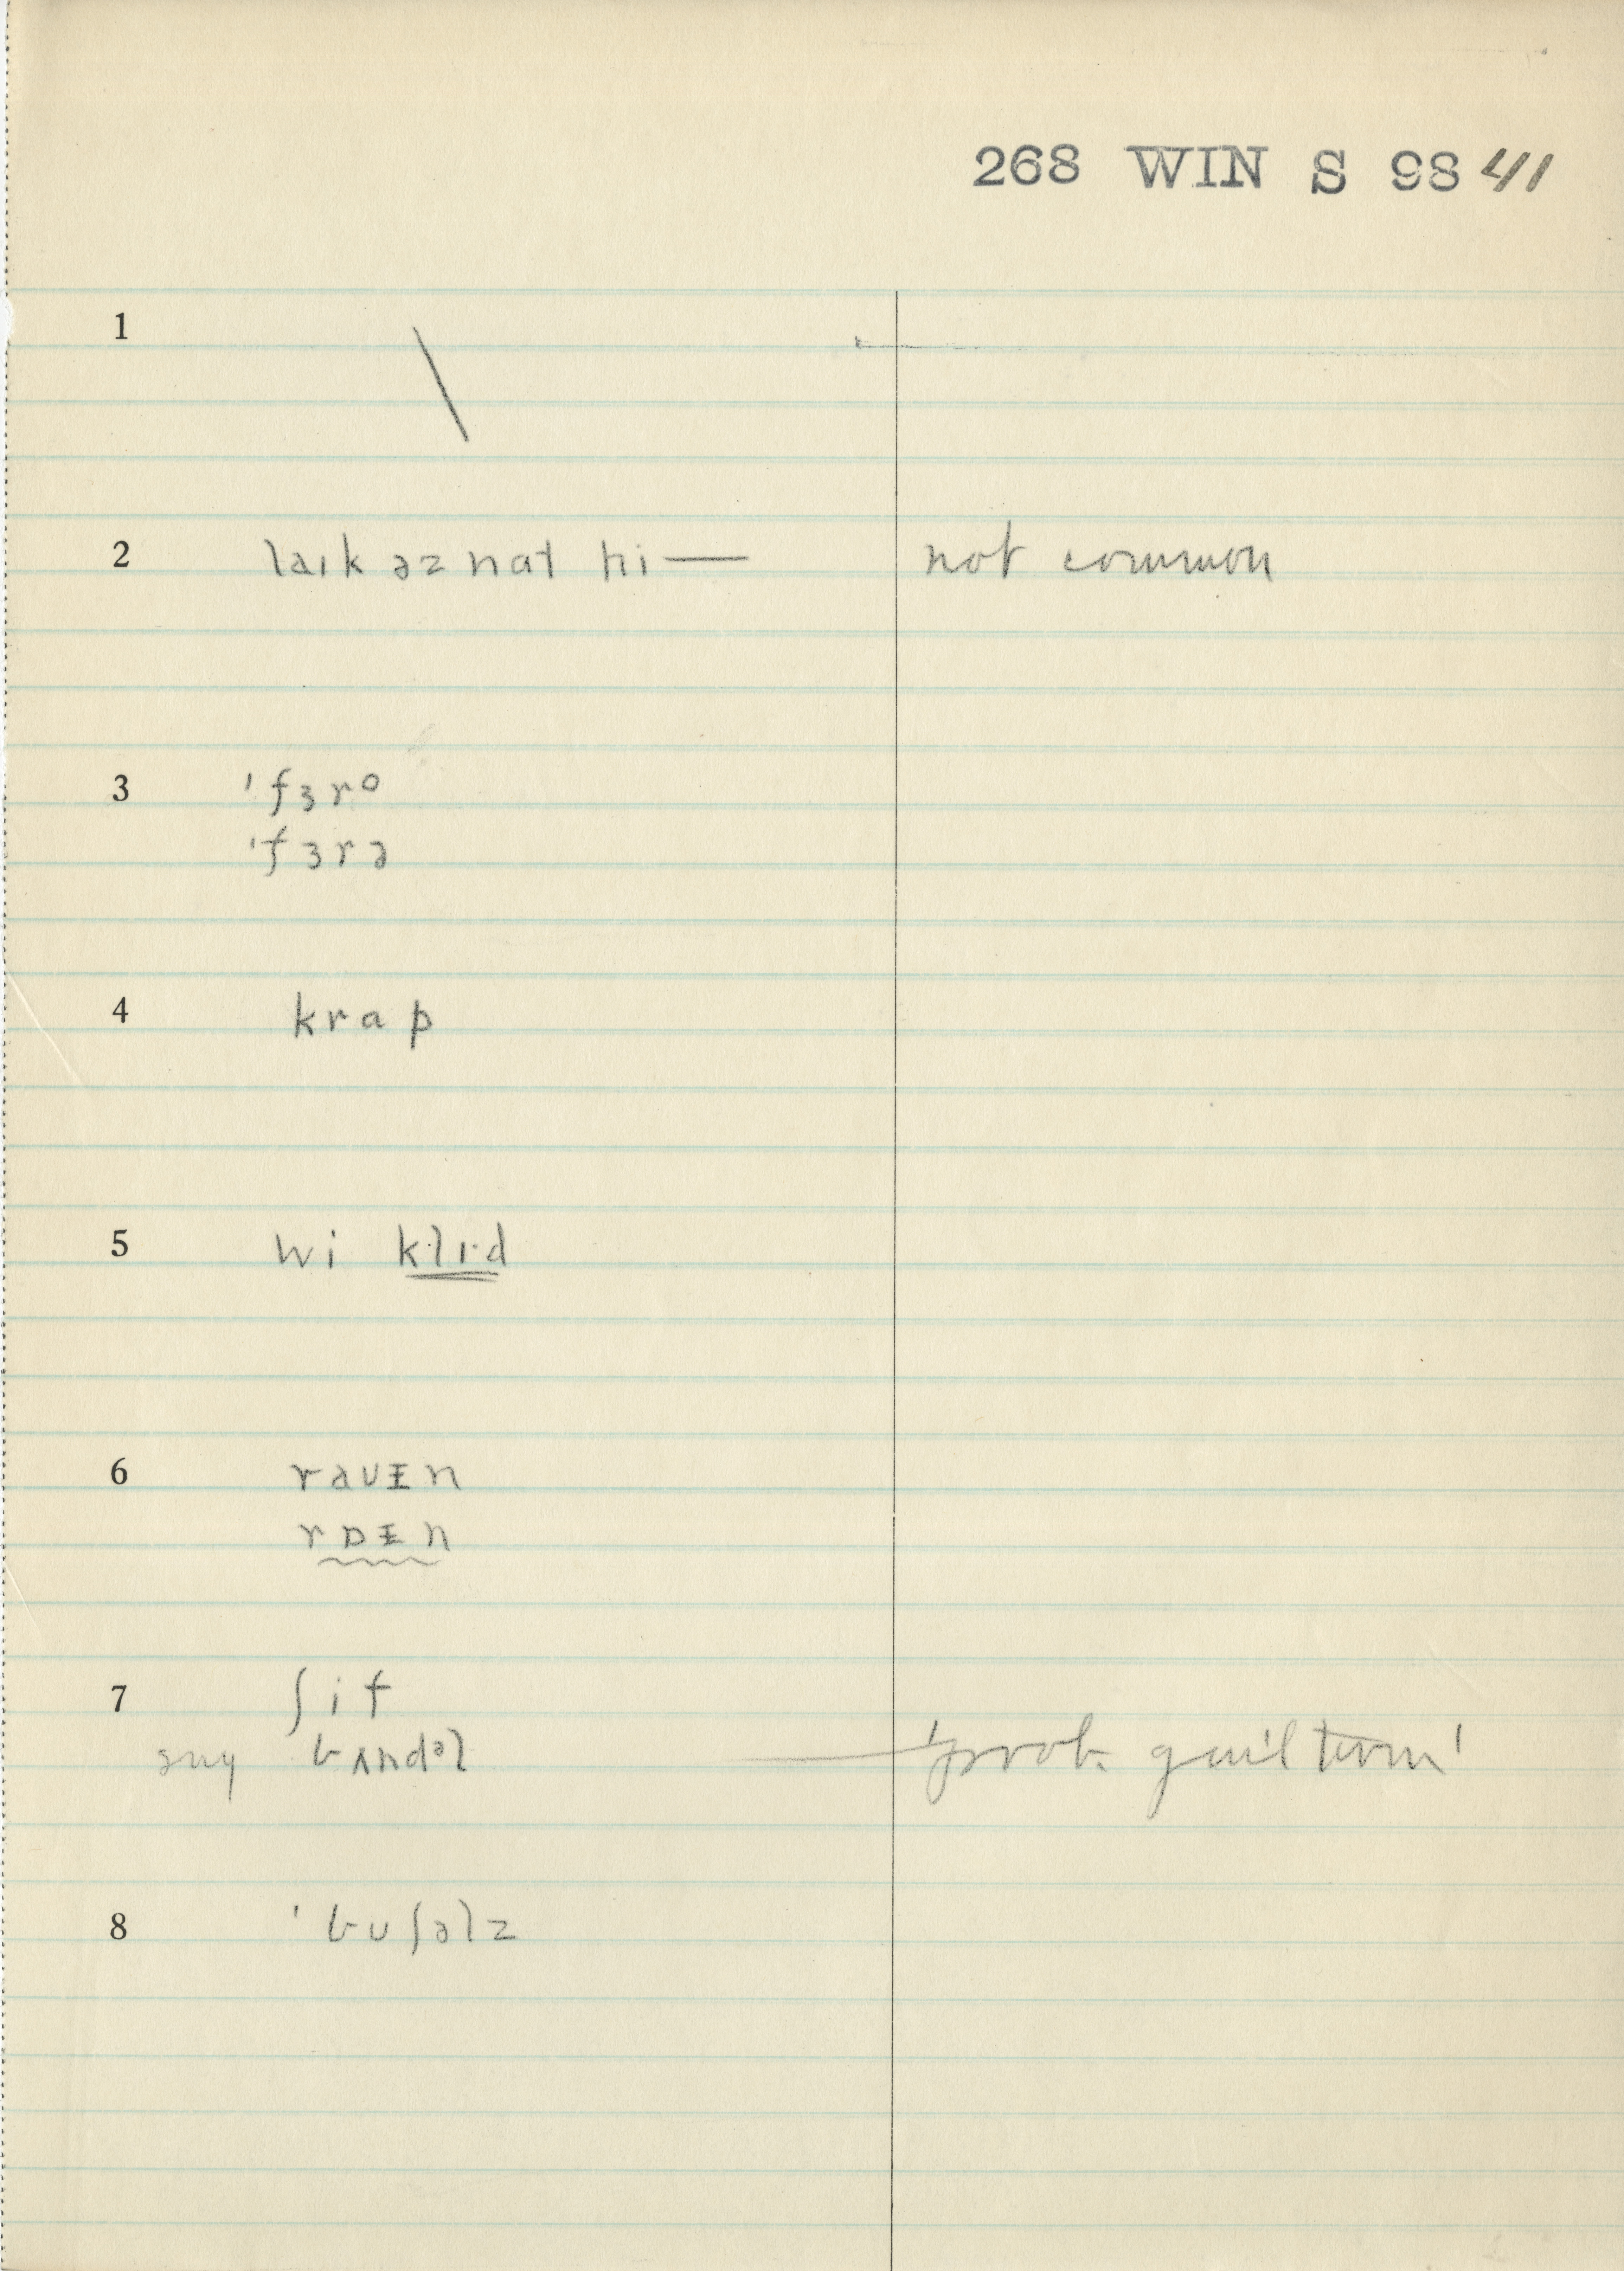 268 WIN S 98 41
1 \
2 laɪk əz nat hi— not common
3 ˈfɜro
ˈfɜrə
4 krap
5 wi klɪ·d
6 raʊᵻn
rɒᵻn
7 ʃif
say bʌndᵊl — 'prob. guil term'
8 ˈbʊʃəlz